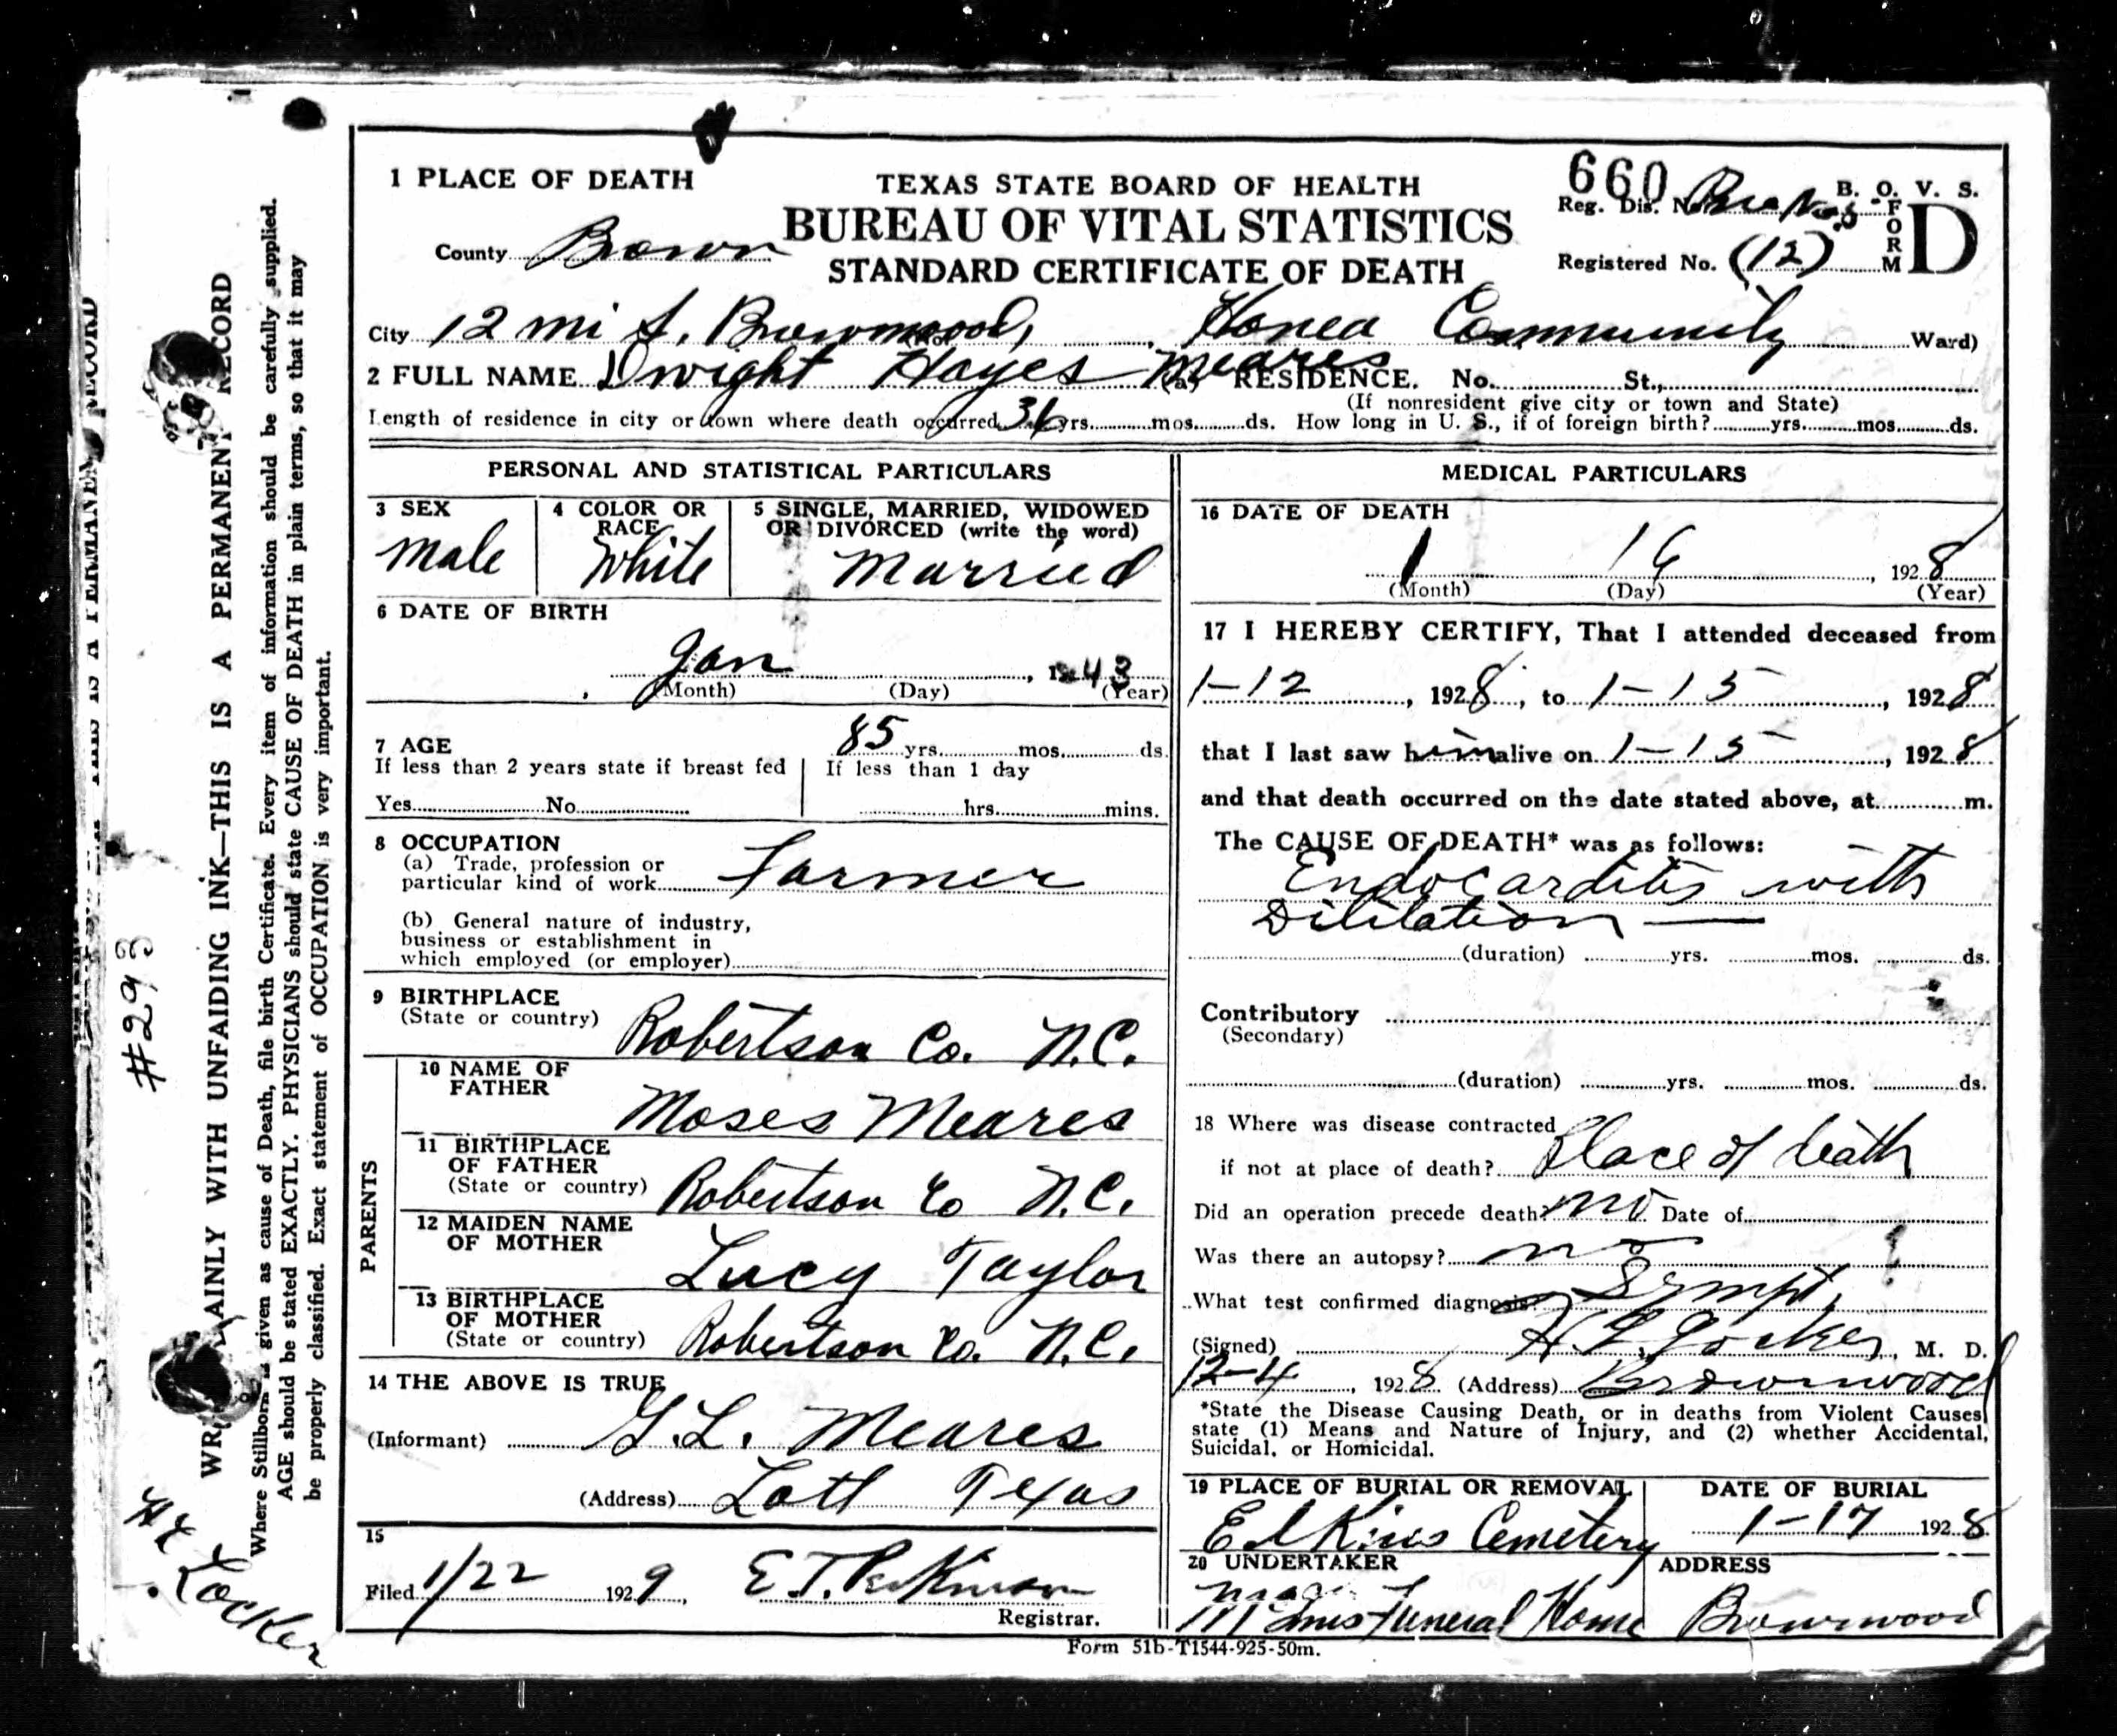 1 PLACE OF DEATH
TEXAS STATE BOARD OF HEALTH
BUREAU OF VITAL STATISTICS
STANDARD CERTIFICATE OF DEATH
660
B. O. V. S.
Reg. Dis. No.
FORM D
Registered No. (12)
County Brown
City 12 mi S. Brownwood, Honea Community Ward)
2 FULL NAME Dwight Hayes Meares (a) RESIDENCE. No. St.,
(If nonresident give city or town and State)
Length of residence in city or town where death occurred 36 yrs. mos. ds. How long in U. S., if of foreign birth? yrs. mos. ds.
PERSONAL AND STATISTICAL PARTICULARS
3 SEX
male
4 COLOR OR RACE
White
5 SINGLE, MARRIED, WIDOWED
OR DIVORCED (write the word)
Married
6 DATE OF BIRTH
Jan , 1843
(Month) (Day) (Year)
7 AGE 85 yrs. mos. ds.
If less than 2 years state if breast fed
Yes No
If less than 1 day
hrs. mins.
8 OCCUPATION
(a) Trade, profession or
particular kind of work Farmer
(b) General nature of industry,
business or establishment in
which employed (or employer)
9 BIRTHPLACE
(State or country) Robertson Co. N.C.
PARENTS
10 NAME OF
FATHER Moses Meares
11 BIRTHPLACE
OF FATHER
(State or country) Robertson Co N.C.
12 MAIDEN NAME
OF MOTHER Lucy Taylor
13 BIRTHPLACE
OF MOTHER
(State or country) Robertson Co. N.C.
14 THE ABOVE IS TRUE
(Informant) G.L. Meares
(Address) Lott Texas
15
Filed 1/22 1929, E.T. Perkinson
Registrar.
MEDICAL PARTICULARS
16 DATE OF DEATH
1 16 , 1928
(Month) (Day) (Year)
17 I HEREBY CERTIFY, That I attended deceased from
1-12 , 1928, to 1-15 , 1928
that I last saw him alive on 1-15 , 1928
and that death occurred on the date stated above, at m.
The CAUSE OF DEATH* was as follows:
Endocarditis with
Dililation
(duration) yrs. mos. ds.
Contributory
(Secondary)
(duration) yrs. mos. ds.
18 Where was disease contracted
if not at place of death? Place of death
Did an operation precede death? no Date of
Was there an autopsy? no
What test confirmed diagnosis? Sympt.
(Signed) H L Locker, M. D.
12-4 , 1928 (Address) Brownwood
*State the Disease Causing Death, or in deaths from Violent Causes
state (1) Means and Nature of Injury, and (2) whether Accidental,
Suicidal, or Homicidal.
19 PLACE OF BURIAL OR REMOVAL
Elkins Cemetery
DATE OF BURIAL
1-17 1928
20 UNDERTAKER
McInnis Funeral Home
ADDRESS
Brownwood
Form 51b-T1544-925-50m.
AINLY WITH UNFAIDING INK—THIS IS A PERMANENT RECORD
Where Stillborn is given as cause of Death, file birth Certificate. Every item of information should be carefully supplied.
AGE should be stated EXACTLY. PHYSICIANS should state CAUSE OF DEATH in plain terms, so that it may
be properly classified. Exact statement of OCCUPATION is very important.
#293
HL Locker